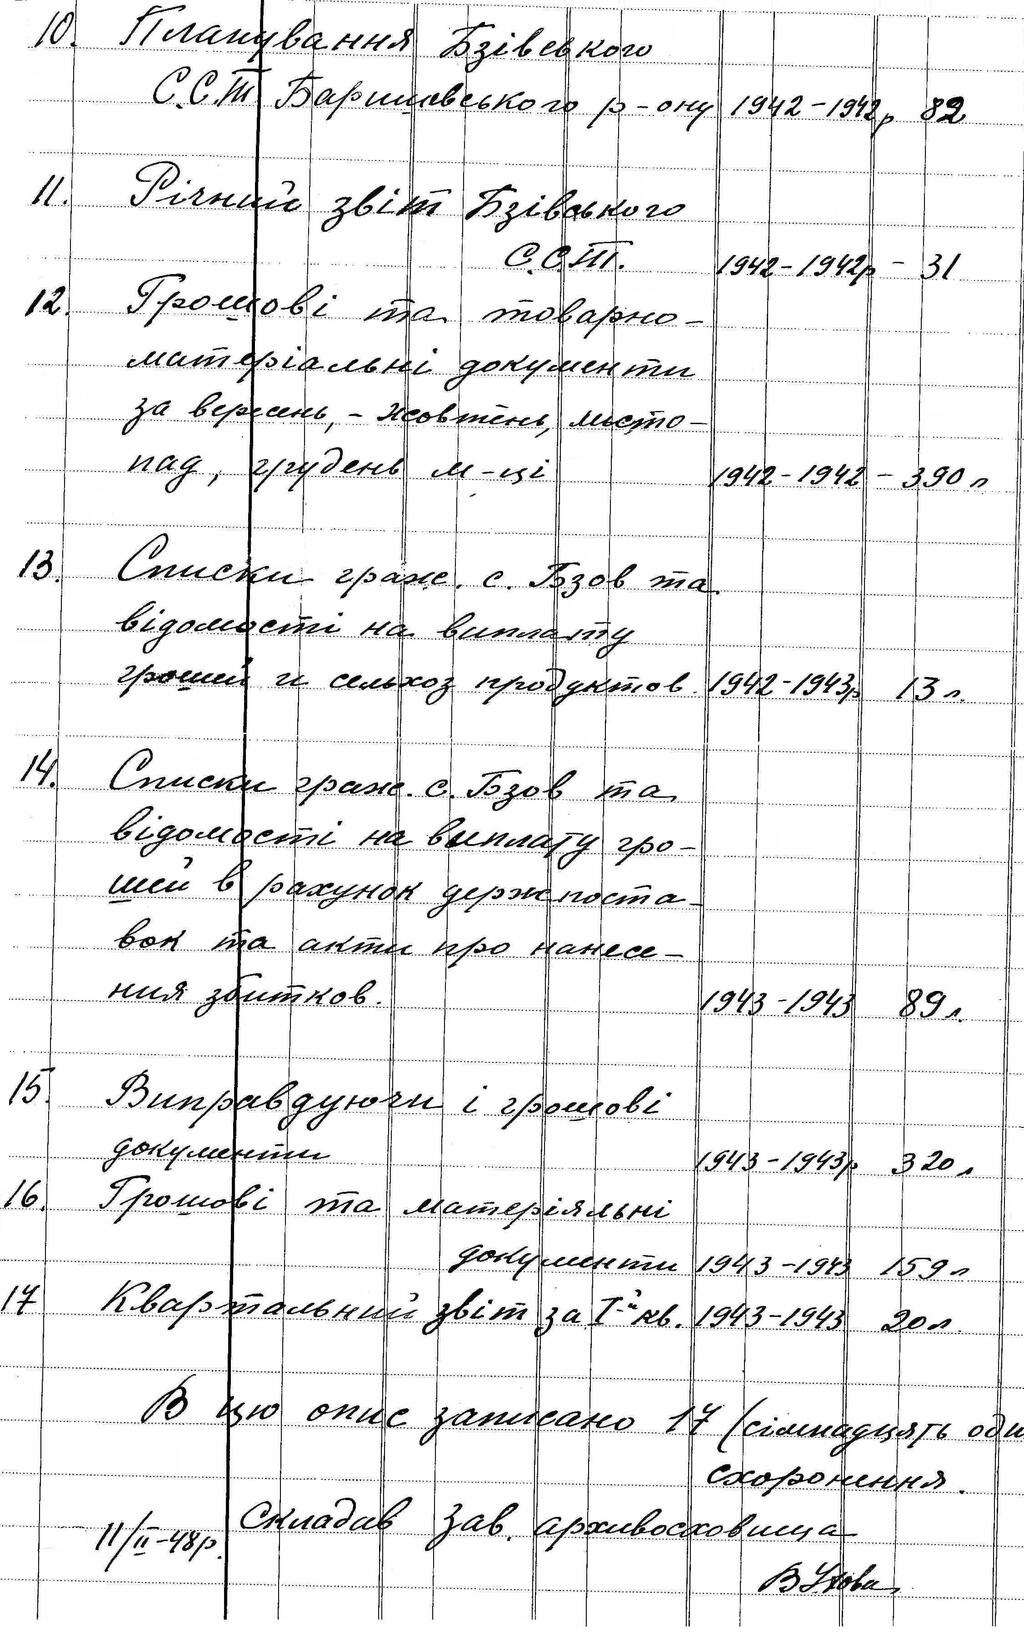 10. Планування Бзівського
С.С.Т Баришевського р-ону 1942-1942р 82
11. Річний звіт Бзівського
С.С.Т. 1942-1942р - 31
12. Грошові та товарно-
матеріальні документи
за вересень, - жовтень, листо-
пад, грудень м-ці 1942-1942 - 390 л
13. Списки граж. с. Бзов та
відомості на виплату
грошей и сельхоз продуктов 1942-1943р 13 л.
14. Списки граж. с. Бзов та
відомості на виплату гро-
шей в рахунок держпоста-
вок та акти про нанесе-
ния збитков. 1943-1943 89 л.
15. Виправдуючи і грошові
документи 1943-1943р 320 л
16. Грошові та матеріяльні
документи 1943-1943 159 л
17 Квартальний звіт за I-й кв. 1943-1943 20 л.
В цю опис записано 17 (сімнадцять оди
схоронення.
11/II-48р. Складав Зав. архивосховища